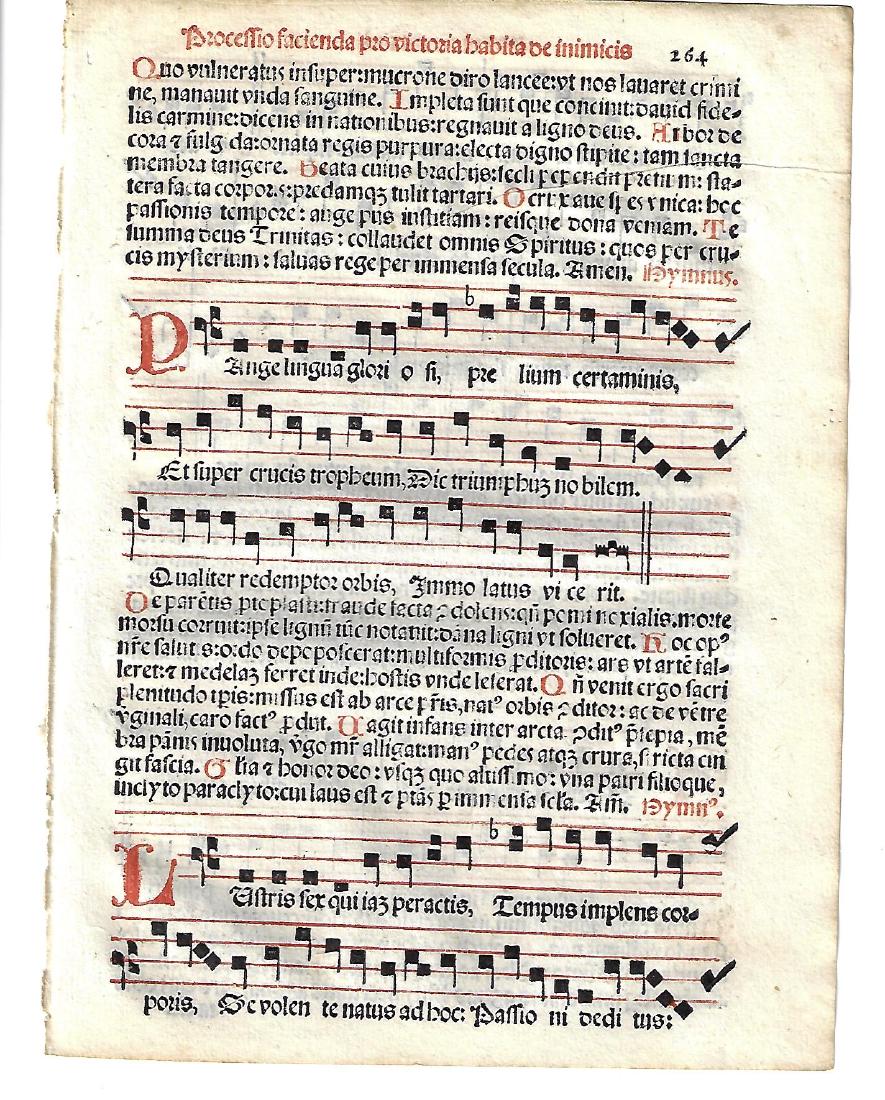 Processio facienda pro victoria habita de inimicis 264
Quo vulneratus insuper:mucrone diro lancee:vt nos lauaret crimi
ne, manauit vnda sanguine. Impleta sunt que concinit:dauid fide-
lis carmine:dicens in nationibus:regnauit a ligno deus. Arbor de
cora ⁊ fulg da:ornata regis purpura:electa digno stipite: tam sancta
membra tangere. Beata cuius brachijs:secli pependit pretium: sta-
tera facta corporis:predamqꝫ tulit tartari. O crux aue spes vnica: hoc
passionis tempore: auge pijs iustitiam: reisque dona veniam. Te
summa deus Trinitas: collaudet omnis Spiritus: quos per cru-
cis mysterium: saluas rege per immensa secula. Amen. Hymnus.
PAnge lingua glori o si, pre lium certaminis,
Et super crucis tropheum, Dic triumphuꝫ no bilem.
Qualiter redemptor orbis, Immo latus vi ce rit.
De parētis protoplasti:fraude facta ꝯdolens:qñ pomi noxialis:morte
morsu corruit:ipse lignū tūc notauit:dāna ligni vt solueret. Hoc opꝰ
nr̄e salutis:ordo depoposcerat:multiformis ꝓditoris: ars vt artē fal-
leret:⁊ medelaꝫ ferret inde:hostis vnde leserat. Qñ venit ergo sacri
plenitudo tp̄is:missus est ab arce pr̄is, natꝰ orbis ꝯditor: ac de vētre
v̄ginali, caro factꝰ ꝓdijt. Uagit infans inter arcta ꝯditꝰ p̄sepia, mē
bra pānis inuoluta, v̄go mr̄ alligat:manꝰ pedes atqꝫ crura, stricta cin
git fascia. Gl̄ia ⁊ honor deo: vsqꝫ quo altissimo: vna patri filioque,
inclyto paraclyto:cui laus est ⁊ ptās ꝑ immensa scl̄a. Am̄. Hymnꝰ.
LUstris sex qui iaꝫ peractis, Tempus implens cor-
poris, Se volen te natus ad hoc: Passio ni dedi tus: